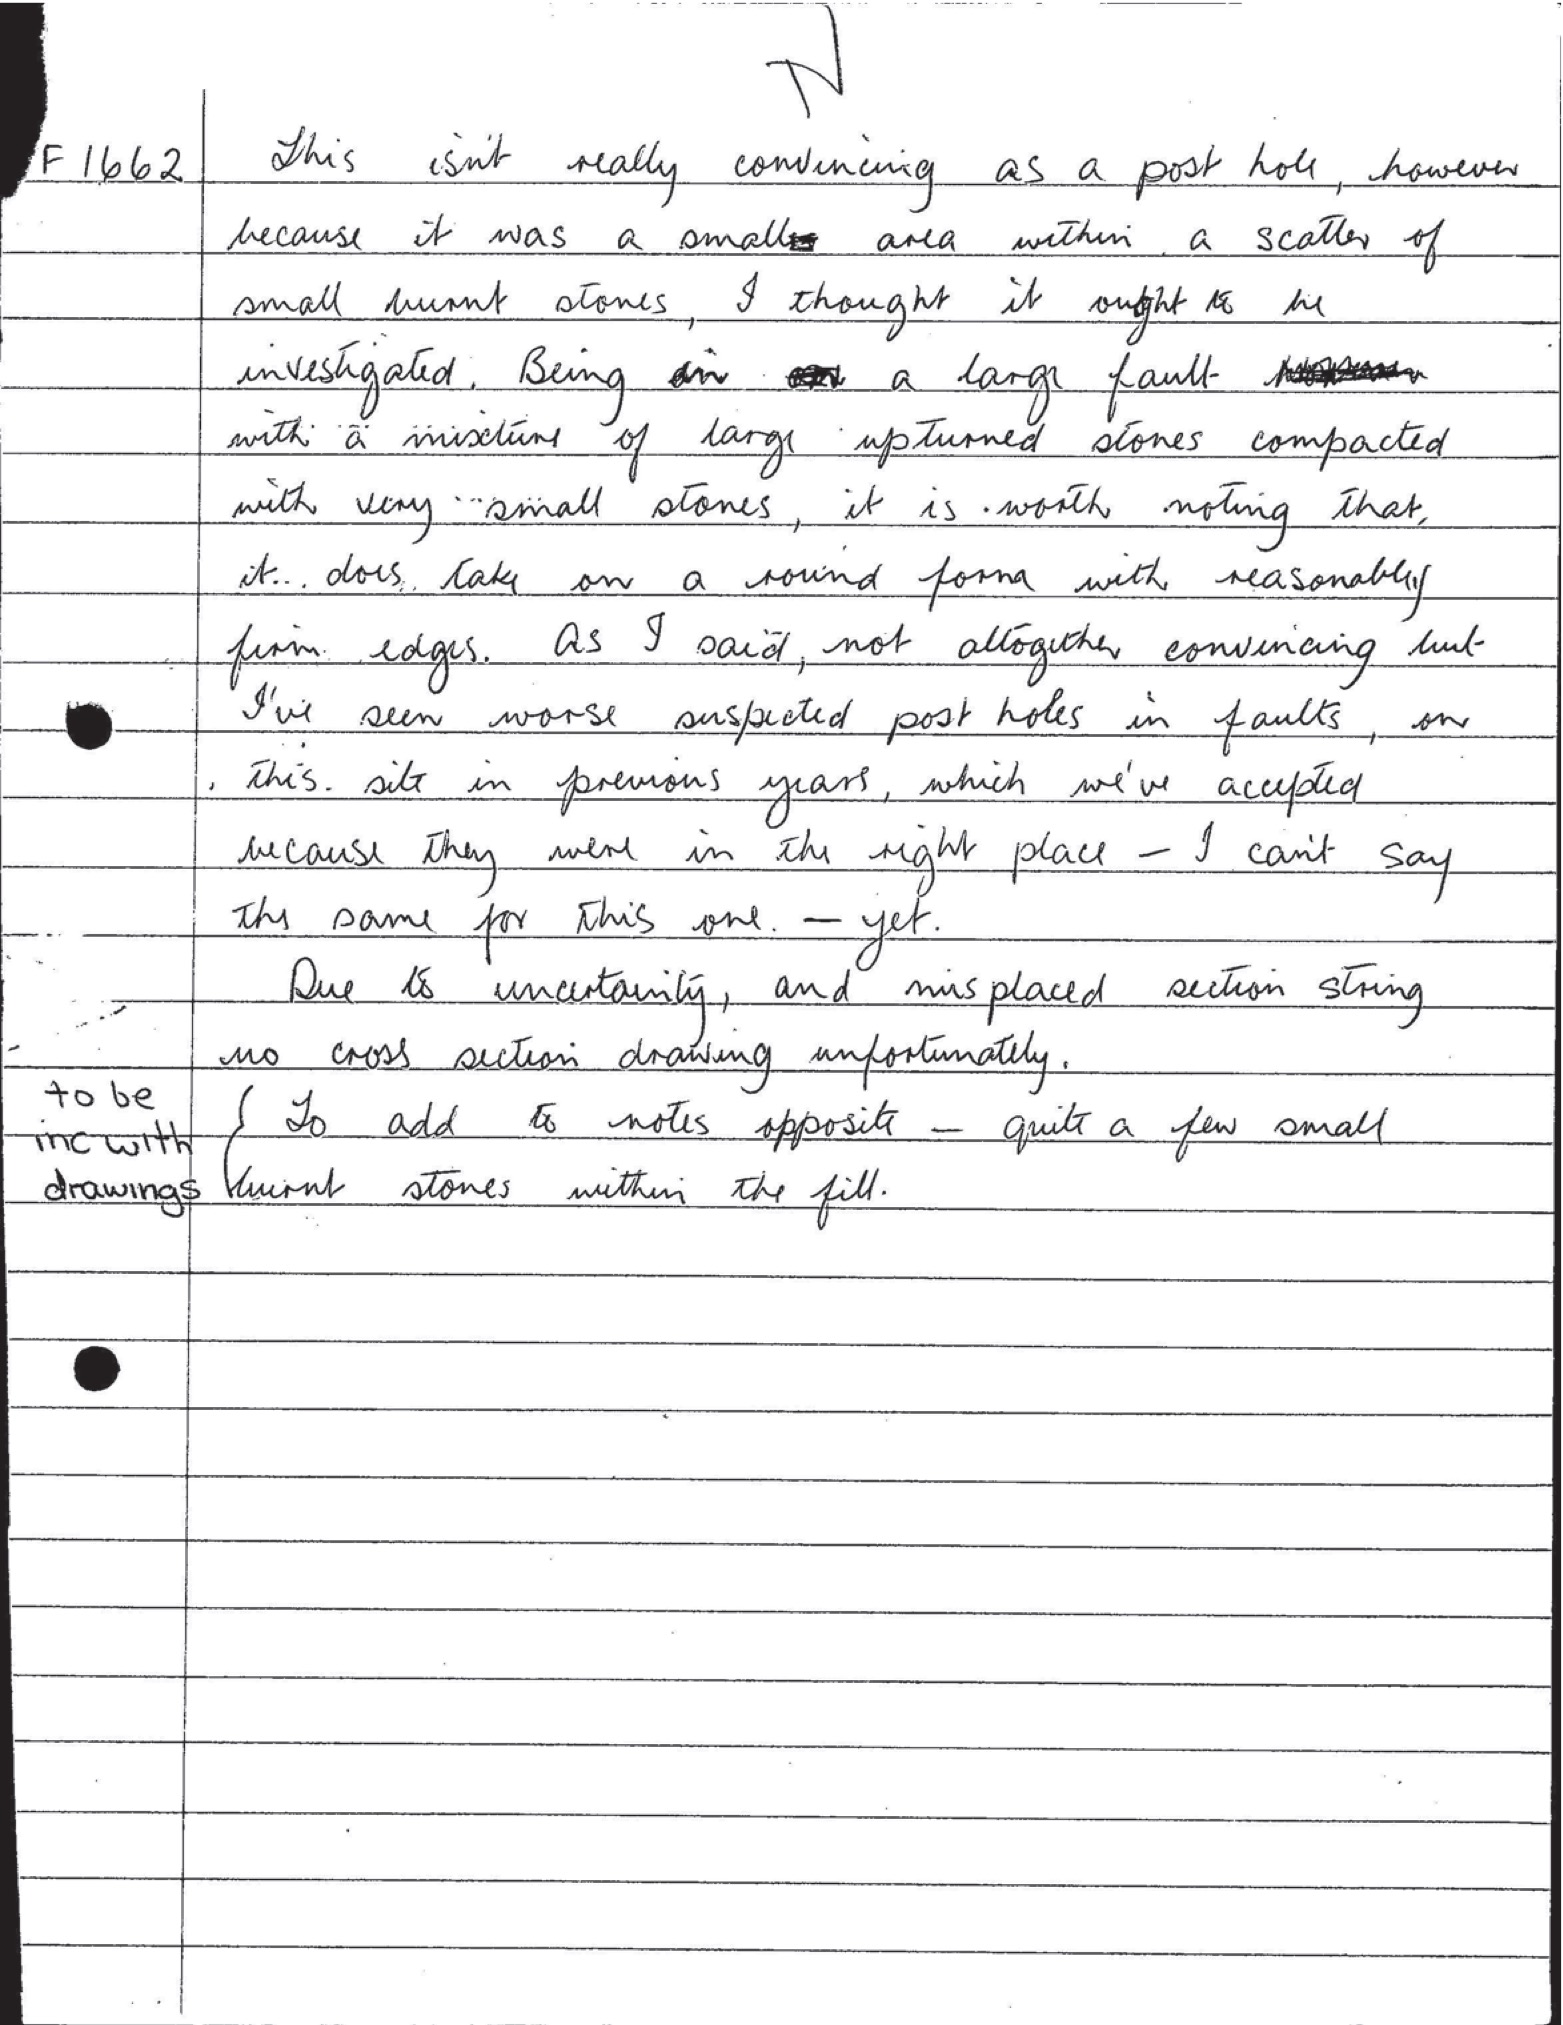 F 1662 This isn't really convincing as a post hole, however
because it was a small area within a scatter of
small burnt stones, I thought it ought to be
investigated. Being in a large fault
with a mixture of large upturned stones compacted
with very small stones, it is worth noting that,
it.. does take on a round form with reasonably
firm edges. As I said, not altogether convincing but
I've seen worse suspected post holes in faults, on
this site in previous years, which we've accepted
because they were in the right place – I can't say
the same for this one. – yet.
Due to uncertainity, and misplaced section string
no cross section drawing unfortunately.
to be
inc with
drawings
{ To add to notes opposite – quite a few small
burnt stones within the fill.